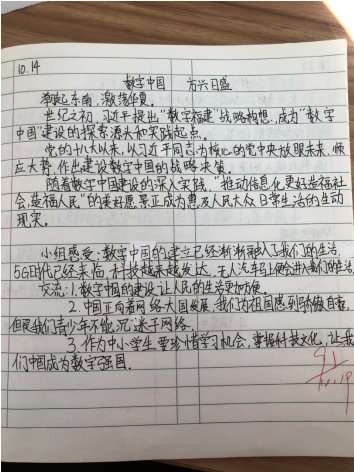 10.14
数字中国 方兴日盛
潮起东南,激荡华夏。
世纪之初,习近平提出“数字福建”战略构想,成为“数字
中国”建设的探索源头和实践起点。
党的十八大以来,以习近平同志为核心的党中央放眼未来,顺
应大势,作出建设数字中国的战略决策。
随着数字中国建设的深入实践,“推动信息化更好造福社
会,造福人民”的美好愿景正成为惠及人民大众日常生活的生动
现实。
小组感受:数字中国的建立已经渐渐融入了我们的生活,
5G时代已经来临,科技越来越发达,无人汽车马上便会进入我们的生活。
交流:1.数字中国的建设让人民的生活更加方便。
2.中国正向着网络大国发展,我们为祖国感到骄傲自豪,
但是我们青少年不能沉迷于网络。
3.作为中小学生要珍惜学习机会,掌握科技文化,让我
们中国成为数字强国。
10.19